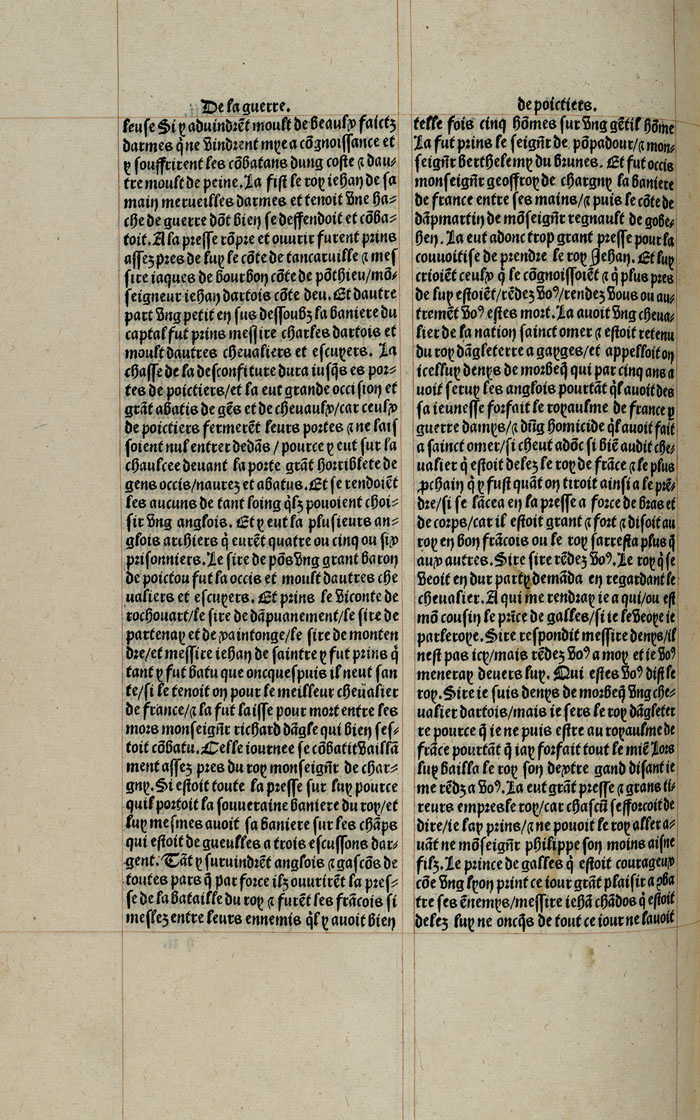 De la guerre.
leuse Si y aduindrẽt moult de beaulx faictz
darmes q̃ ne vindrent mye a cõgnoissance et
y souffrirent les cõbatans dung coste ⁊ dau⸗
tre moult de peine. La fist le roy iehan de sa
main merueilles darmes et tenoit vne ha⸗
che de guerre dõt bien se deffendoit et cõba⸗
toit. A la presse rõpre et ouurir furent prins
assez pres de luy le cõte de tancaruille ⁊ mes
sire iaques de bourbon cõte de põthieu/mõ⸗
seigneur iehan dartois cõte deu. Et dautre
part vng petit en sus dessoubz la baniere du
captal fut prins messire charles dartois et
moult dautres cheualiers et escuyers. La
chasse de la desconfiture dura iusq̃s es por⸗
tes de poictiers/et la eut grande occision et
grãt abatis de gẽs et de cheuaulx/car ceulx
de poictiers fermerẽt leurs portes ⁊ ne lais
soient nul entrer dedãs / pource y eut sur la
chaulcee deuant la porte grãt horriblete de
gens occis/naurez et abatus. Et se rendoiẽt
les aucuns de tant loing q̃lz pouoient choi⸗
sir vng anglois. Et y eut la plusieurs an⸗
glois archiers q̃ eurẽt quatre ou cinq ou six
prisonniers. Le sire de põs vng grant baron
de poictou fut la occis et moult dautres che
ualiers et escuyers. Et prins le viconte de
rochouart/le sire de dãpuanement/le sire de
partenay et de xaintonge/le sire de monten
dre/et messire iehan de saintre y fut prins q̃
tant y fut batu que oncquespuis il neut san
te/si le tenoit on pour le meilleur cheualier
de france/⁊ la fut laisse pour mort entre les
mors monseignr̃ richard dãgle qui bien ses⸗
toit cõbatu. Celle iournee se cõbatit vaillã
ment assez pres du roy monseignr̃ de char⸗
gny. Si estoit toute la presse sur luy pource
quil portoit la souueraine baniere du roy/et
luy mesmes auoit sa baniere sur les chãps
qui estoit de gueulles a trois escussons dar⸗
gent. Tãt y suruindrẽt anglois ⁊ gascõs de
toutes pars q̃ par force ilz ouurirẽt la pres⸗
se de la bataille du roy ⁊ furẽt les frãcois si
meslez entre leurs ennemis q̃l y auoit bien
de poictiers.
telle fois cinq hõmes sur vng gẽtil hõme
La fut prins le seignr̃ de põpadour/⁊ mon⸗
seignr̃ berthelemy du brunes. Et fut occis
monseignr̃ geoffroy de chargny la baniere
de france entre ses mains/⁊ puis le cõte de
dãpmartin de mõseignr̃ regnault de gobe⸗
hen. La eut adonc trop grant presse pour la
couuoitise de prendre le roy Jehan. Et luy
crioiẽt ceulx q̃ le cõgnoissoiẽt ⁊ q̃ plus pres
de luy estoiẽt/rẽdez voꝰ/rendez vous ou au⸗
tremẽt voꝰ estes mort. La auoit vng cheua⸗
lier de la nation sainct omer ⁊ estoit retenu
du roy dãgleterre a gayges/et appelloit on
icelluy denys de morbeq̃ qui par cinq ans a
uoit seruy les anglois pourtãt q̃l auoit des
sa ieunesse forfait le royaulme de france p
guerre damys/⁊ dũg homicide q̃l auoit fait
a sainct omer/si cheut adõc si biẽ audit che⸗
ualier q̃ estoit delez le roy de frãce ⁊ le plus
ꝓchain q̃ y fust quãt on tiroit ainsi a le prẽ⸗
dre/si se lãcea en la presse a force de bras et
de corps/car il estoit grant ⁊ fort ⁊ disoit au
roy en bon frãcois ou le roy sarresta plus q̃
aux autres. Sire sire rẽdez voꝰ. Le roy q̃ se
veoit en dur party demãda en regardant le
cheualier. A qui me rendray ie a qui/ou est
mõ cousin le prĩce de galles/si ie le veoye ie
parleroye. Sire respondit messire denys/il
nest pas icy/mais rẽdez voꝰ a moy et ie voꝰ
meneray deuers luy. Qui estes voꝰ dist le
roy. Sire ie suis denys de morbeq̃ vng che⸗
ualier dartois/mais ie sers le roy dãgleter
re pource q̃ ie ne puis estre au royaulme de
frãce pourtãt q̃ iay forfait tout le miẽ Lors
luy bailla le roy son dextre gand disant ie
me rẽdz a voꝰ. La eut grãt presse ⁊ grans ti⸗
reurs empres le roy/car chascũ sefforcoit de
dire/ie lay prins/⁊ ne pouoit le roy aller a⸗
uãt ne mõseignr̃ philippe son moins aisne
filz. Le prince de galles q̃ estoit courageux
cõe vng lyon print ce iour grãt plaisir a ꝯba
tre ses ẽnemys/messire iehã chãdos q̃ estoit
delez luy ne oncq̃s de tout ce iour ne lauoit